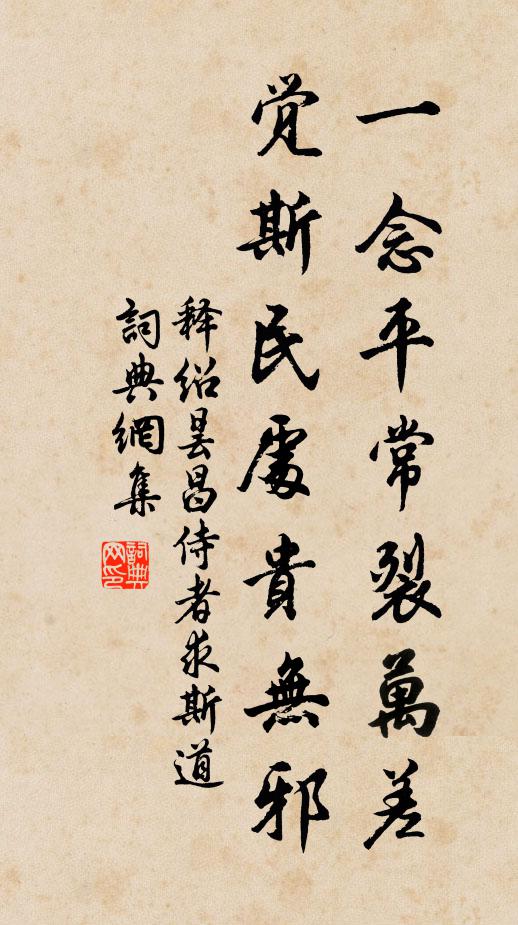 一念平常裂萬差
覚斯民處貴無邪
釋紹曇昌侍者求斯道
詞典網集
詞典網印